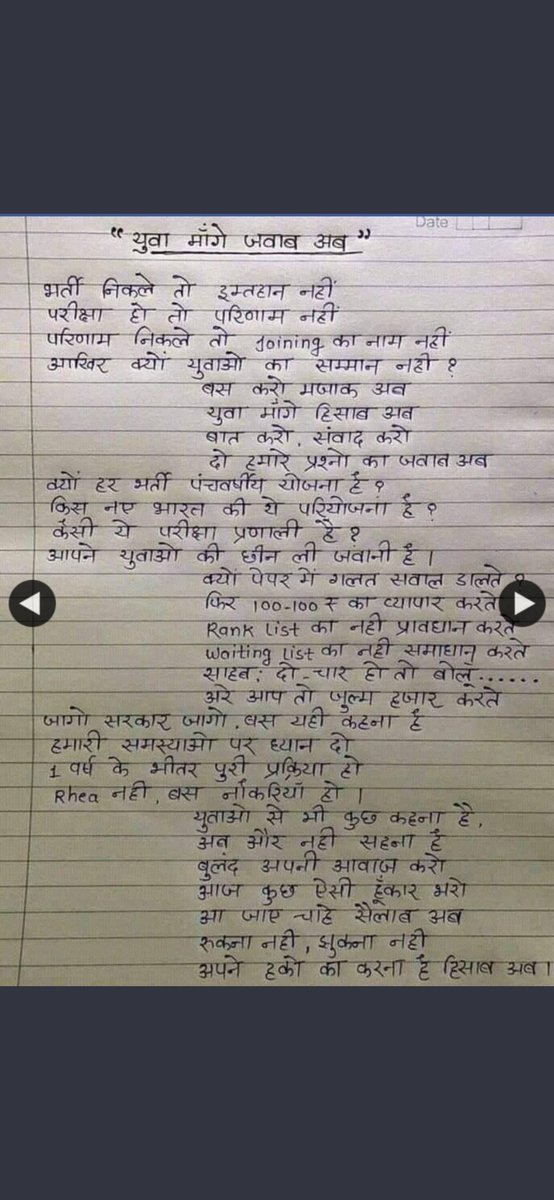 Date
“युवा माँगे जवाब अब”
भर्ती निकले तो इम्तहान नहीं
परीक्षा हो तो परिणाम नहीं
परिणाम निकले तो Joining का नाम नहीं
आखिर क्यों युवाओ का सम्मान नही ?
बस करो मजाक अब
युवा माँगे हिसाब अब
बात करो, संवाद करो
दो हमारे प्रश्नो का जवाब अब
क्यों हर भर्ती पंचवर्षीय योजना है ?
किस नए भारत की ये परियोजना है ?
कैसी ये परीक्षा प्रणाली है ?
आपने युवाओ की छीन ली जवानी है ।
क्यों पेपर में गलत सवाल डालते ?
फिर 100-100 ₹ का व्यापार करते
Rank List का नही प्रावधान करते
Waiting list का नही समाधान करते
साहब; दो-चार हो तो बोलूँ......
अरे आप तो जुल्म हजार करते
जागो सरकार जागो, बस यही कहना है
हमारी समस्याओ पर ध्यान दो
1 वर्ष के भीतर पुरी प्रक्रिया हो
Rhea नही, बस नौकरियाँ हो ।
युवाओ से भी कुछ कहना है,
अब और नही सहना है
बुलंद अपनी आवाज़ करो
आज कुछ ऐसी हूँकार भरो
आ जाए चाहे सैलाब अब
रुकना नही, झुकना नही
अपने हको का करना है हिसाब अब ।